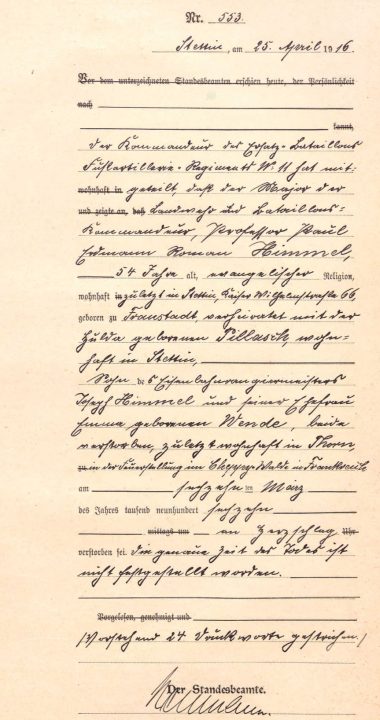 Nr. 553.
Stettin, am 25. April 1916.
Vor dem unterzeichneten Standesbeamten erschien heute, der Persönlichkeit
nach
kannt,
der Kommandeur des Ersatz-Bataillons
Fußartillerie-Regiments Nr. 11 hat mit=
wohnhaft in geteilt daß der Major der
und zeigte an, daß Landwehr und Bataillons=
Kommandeur, Professor Paul
Erdmann Roman Himmel,
54 Jahre alt, evangelischer Religion,
wohnhaft in zuletzt in Stettin, Kaiser Wilhelmstraße 66,
geboren zu Fraustadt, verheiratet mit der
Hulda geborenen Pillasch, wohn=
haft in Stettin,
Sohn des Eisenbahnrangiermeisters
Joseph Himmel und seiner Ehefrau
Emma geborenen Wende, beide
verstorben, zuletzt wohnhaft in Thorn,
zu in der Feuerstellung im Walde in Frankreich
am sechzehnten März
des Jahres tausend neunhundert sechzehn
mittags um an Herzschlag Uhr
verstorben sei. Die genaue Zeit des Todes ist
nicht festgestellt worden.
Vorgelesen, genehmigt und
/Vorstehend 24 Druckworte gestrichen./
Der Standesbeamte.